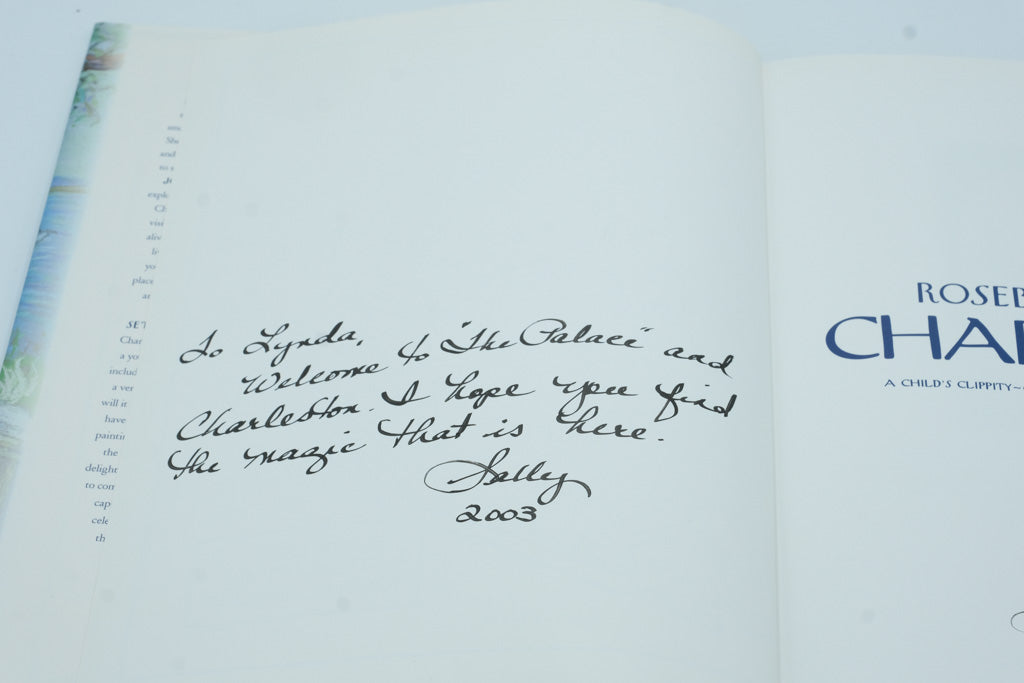 and
expl
visi
aliv
yo
place
at
SET
Char
a yo
includ
a ver
will it
have
paintin
the
delight
to con
cap
cele
th
To Lynda,
Welcome to "The Palace" and
Charleston. I hope you find
the magic that is here.
Sally
2003
ROSEB
CHA
A CHILD'S CLIPPITY~